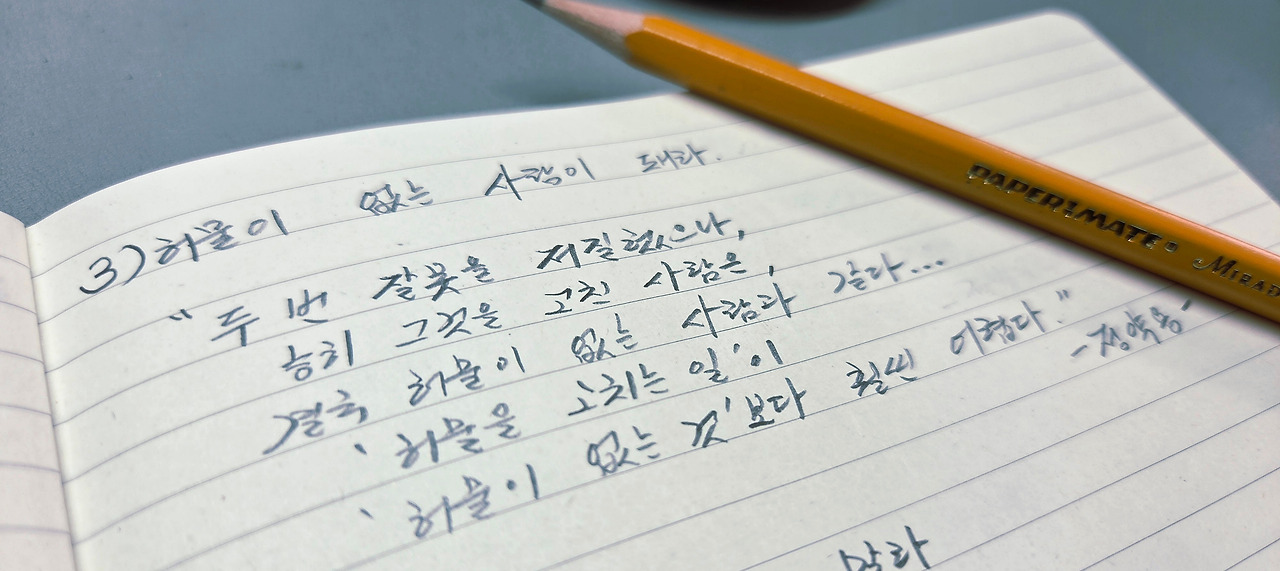 3) 허물이 없는 사람이 돼라.
“ 두 번 잘못을 저질렀으나,
능히 그것을 고친 사람은,
결국, 허물이 없는 사람과 같다...
‘허물을 고치는 일’이
‘허물이 없는 것’보다 훨씬 어렵다.”
-정약용-
말라
PAPER:MATE® MIRAD